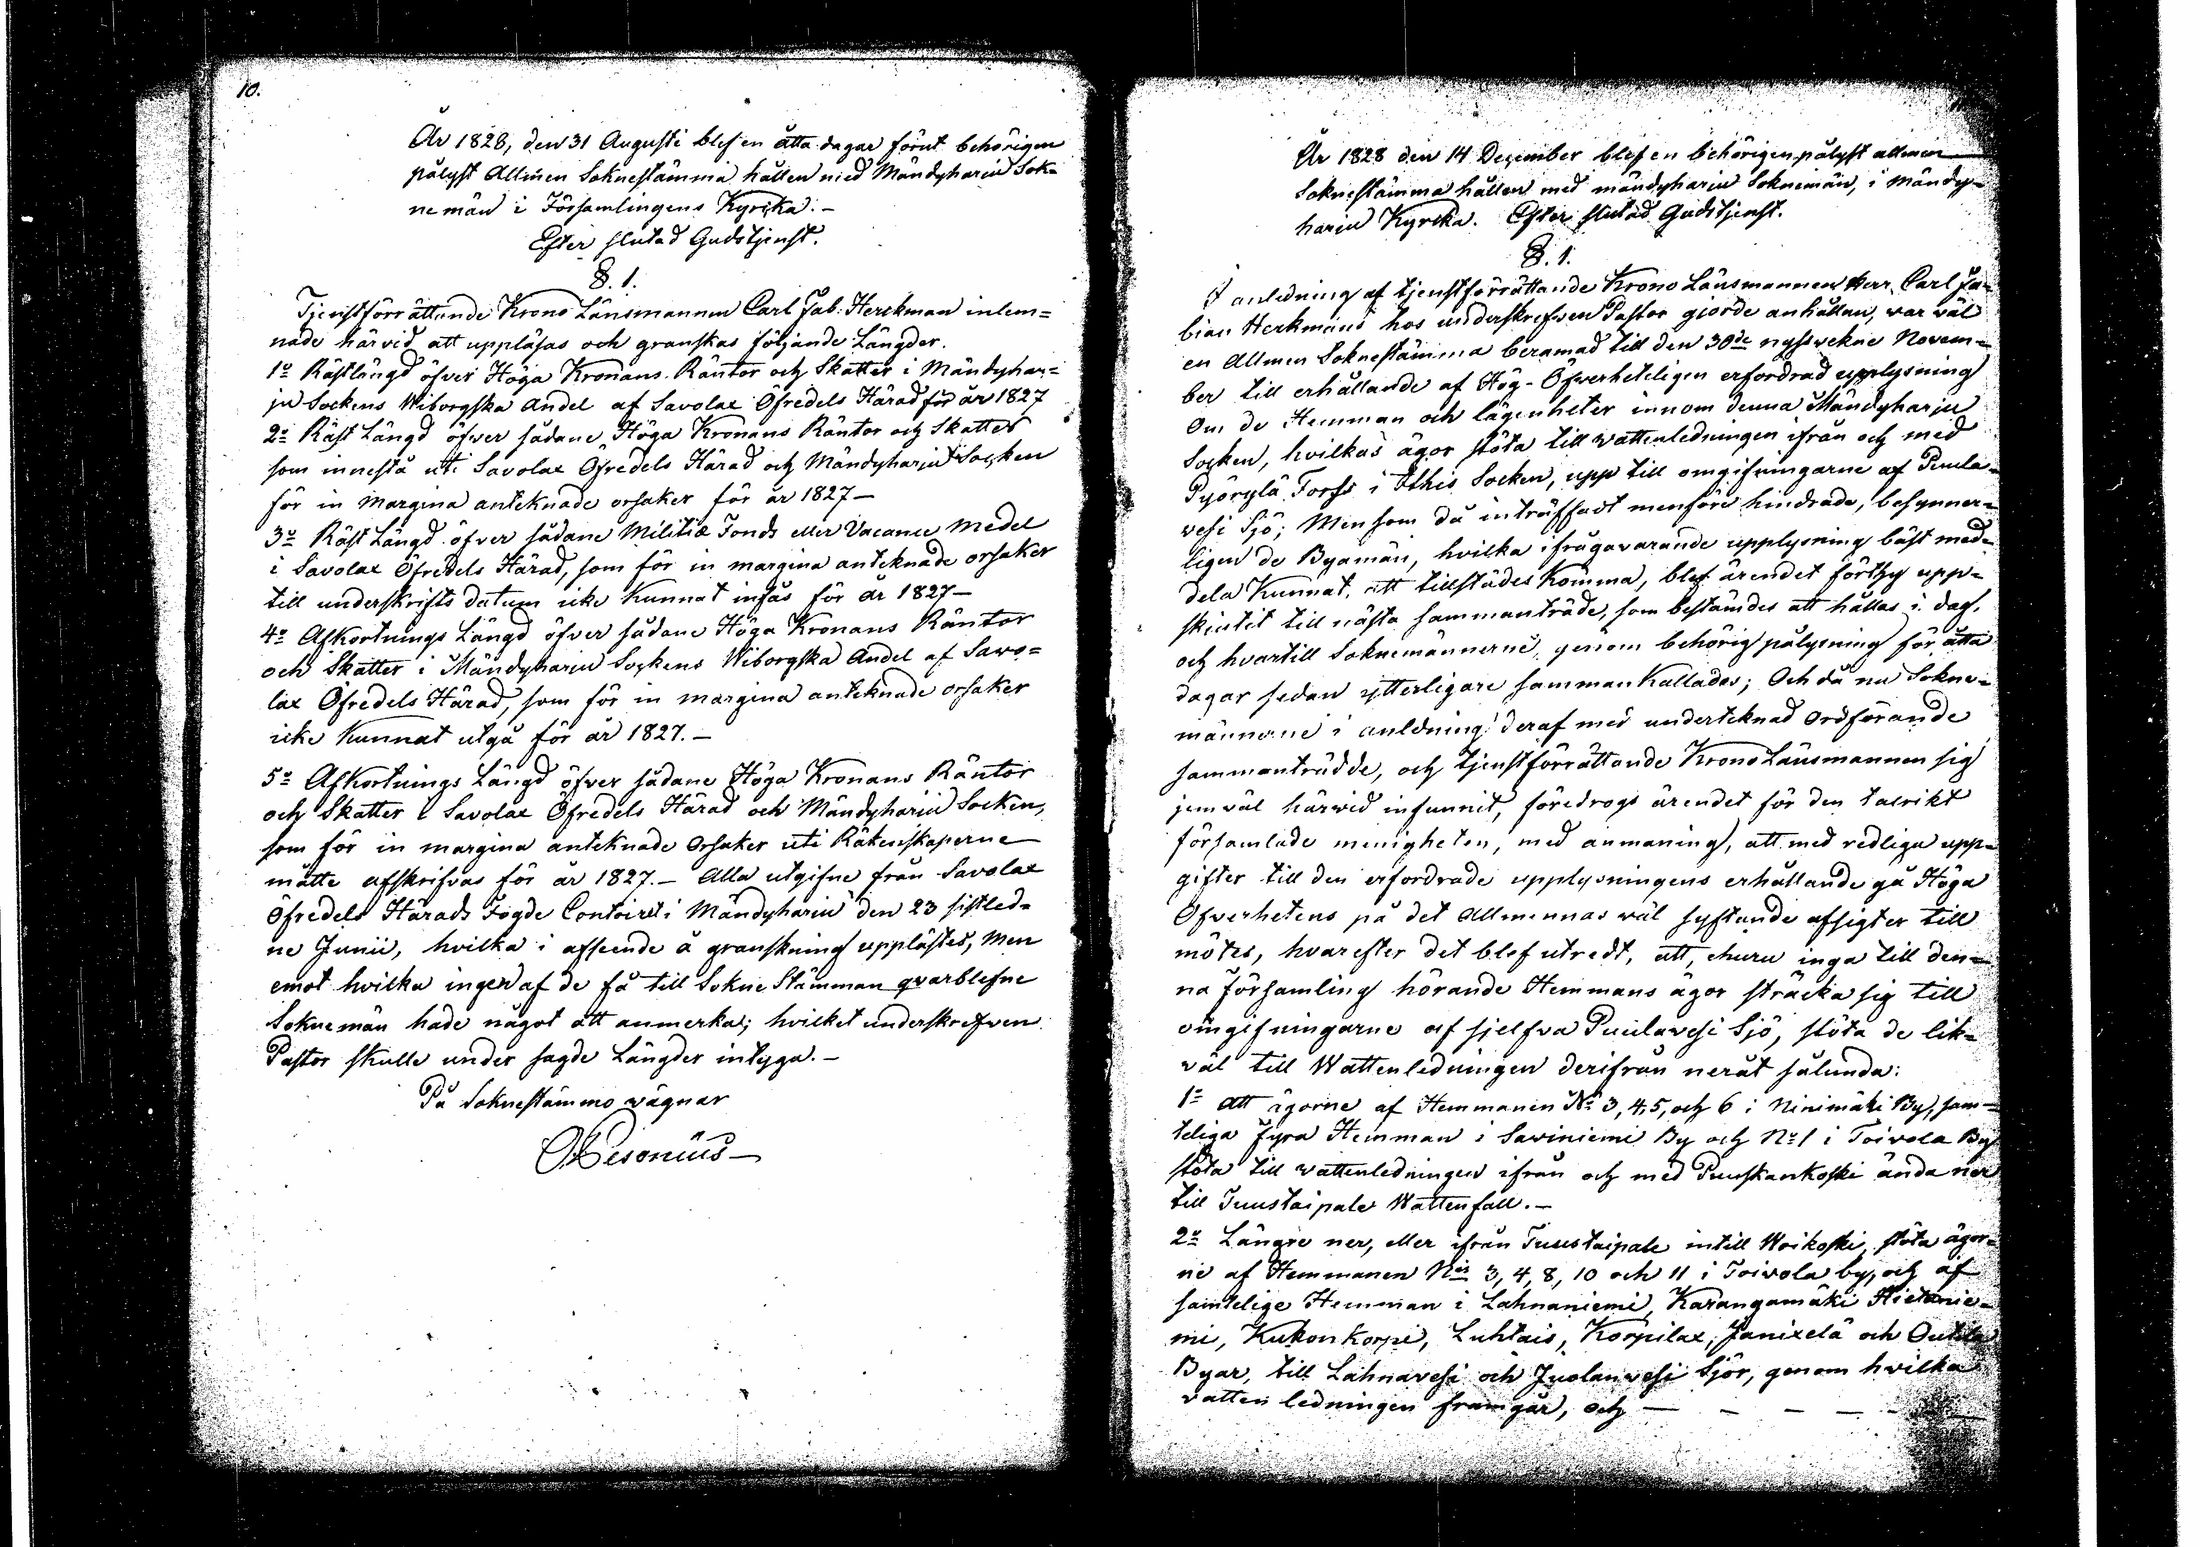 10.
År 1828, den 31 Augusti blef en åtta dagar förut behörigen
pålyst Allmen Soknestämma hållen med Mändyhariu Sok=
ne män i Församlingens Kyrcka. –
Efter slutad Gudstjenst.
§. 1.
Tjenstförrättande Krono Länsmannen Carl Fab. Herckman inlem=
nade härvid att uppläsas och granskas följande Längder.
1o Rästlängd öfver Höga Kronans Räntor och Skatter i Mändyhar=
ju Sockens Wiborgska Andel af Savolax Öfredels Härad för år 1827
2o Räst Längd öfver sådane Höga Kronans Räntor och Skatter
som innestå uti Savolax Öfredels Härad och Mändyhariu Socken
för in margina anteknade orsaker för år 1827 –
3o Räst Längd öfver sådane Militiæ Fonds eller Vacance Medel
i Savolax Öfredels Härad, som för in margina anteknade orsaker
till underskrifts datum icke kunnat infås för år 1827 –
4o Afkortnings Längd öfver sådane Höga Kronans Räntor
och Skatter i Mändyhariu Sockens Wiborgska Andel af Sawo=
lax Öfredels Härad, som för in margina anteknade orsaker
icke kunnat utgå för år 1827. –
5o Afkortnings Längd öfver sådane Höga Kronans Räntor
och Skatter i Savolax Öfredels Härad och Mändyhariu Socken,
som för in margina anteknade orsaker uti Räkenskaperne
måtte afskrifvas för år 1827. – Alla utgifne från Savolax
Öfredels Härads Fogde Contoiret i Mändyhariu den 23 sistled=
ne Junii, hvilka i afseende å granskning upplästes, Men
emot hvilka ingen af de få till Sokne Stämman qvarblefne
Soknemän hade något att anmerka; hvilket underskrefven
Pastor skulle under sagde Längder intyga. –
På Soknestämmo vägnar
Cesonius –
År 1828 den 14 December blef en behörigen pålyst allmen
Soknestämma hållen med mändyhariu Soknemän, i Mändy=
hariu Kyrcka. Efter slutad Gudstjenst.
§. 1.
I anledning af tjenstförrättande Krono Länsmannen Herr Carl Fa=
bian Herkmans hos underskrefven Pastor giorde anhållan, war wäl
en Allmen Soknestämma beramad till den 30de nysswekne Novem=
ber till erhållande af Hög-Öfverheteligen erfordrad upplysning
Om de Hemman och lägenheter innom denna Mändyhariu
Socken, hvilkas ägor stöta till wattenledningen ifrån och med
Pyörylä Forss i Ithis Socken, upp till omgifningarne af Puula=
vesi Sjö; Men som då inträffadt menföre hindrade, besynner=
ligen de Byamän, hvilka ifrågavarande upplysning bäst med=
dela Kunnat, att tillstädes Komma, blef ärendet förthy upp=
skjutit till nästa sammanträde, som bestämdes att hållas i dag,
och hvartill Soknemännerne, genom behörig pålysning för åtta
dagar sedan ytterligare sammankallades; Och då nu Sokne=
männerne i anledning deraf med underteknad Ordförande
sammanträdde, och tjenstförrättande Krono Länsmannen sig
jemväl härwid infunnit, föredrogs ärendet för den talrikt
församlade menigheten, med anmaning, att med redliga upp=
gifter till den erfordrade upplysningens erhållande gå Höga
Öfverhetens på det Allmennas wäl syftande afsigter till
mötes, hvarefter det blef utredt, att, ehuru inga till den=
na församling hörande Hemmans ägor sträcka sig till
omgifningarne af sjelfva Puulavesi Sjö, stöta de lik=
väl till Wattenledningen derifrån neråt sålunda:
1o att ägorne af Hemmanen No 3, 4, 5, och 6 i Ninimäki By, sam=
teliga fyra Hemman i Saviniemi By och No 1 i Toivola By
stöta till wattenledningen ifrån och med Puuskankoski ända ner
till Tuustaipale Wattenfall. –
2o Längre ner, eller ifrån Tuustaipale intill Woikoski, stöta ägor=
ne af Hemmanen Nis 3, 4, 8, 10 och 11 i Toivola by, och af
samtelige Hemman i Lahnaniemi, Karangamäki Hietanie=
mi, Kukonkorpi, Luhtais, Korpilax, Janixelä och Outila
Byar, till Lahnavesi och Juolanvesi Sjör, genom hvilka
vatten ledningen framgår, och – – – – –